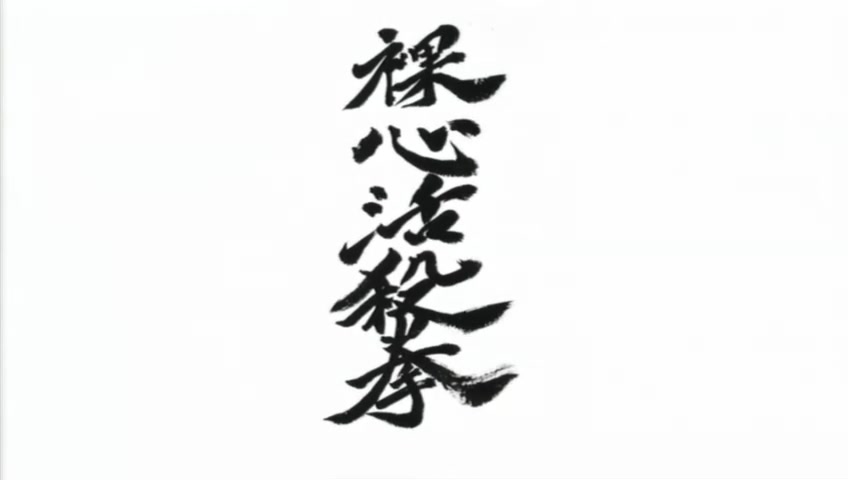 裸心活殺拳